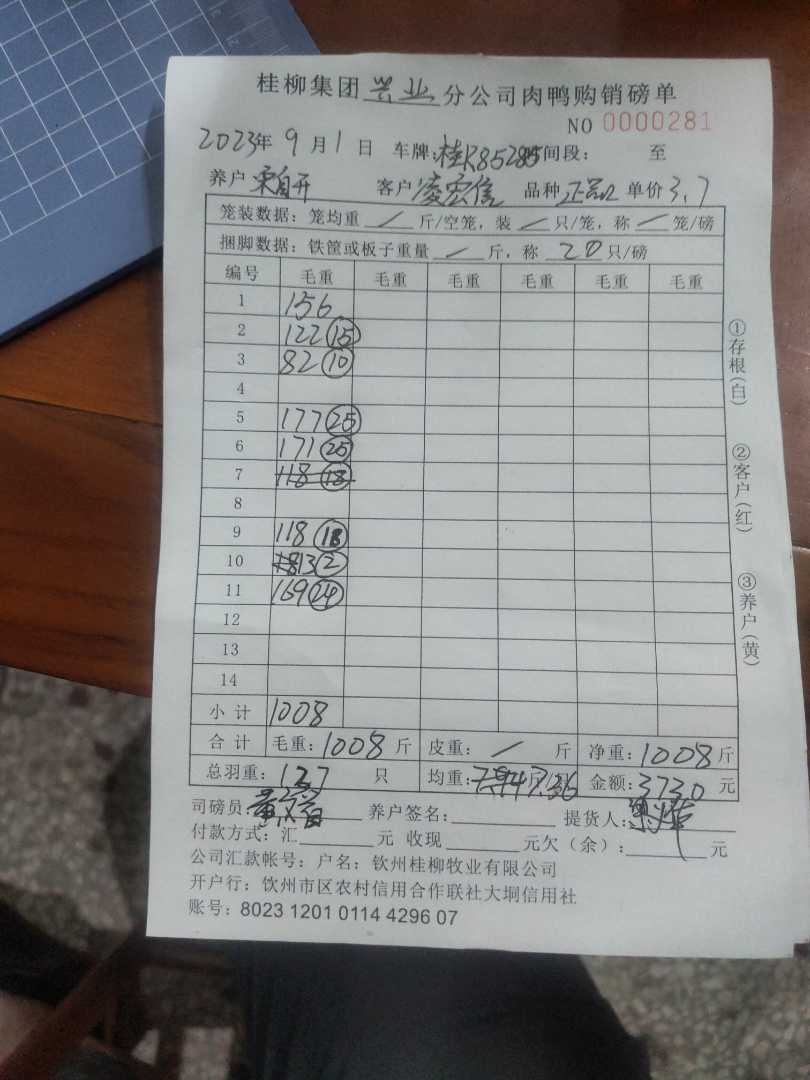 桂柳集团兴业分公司肉鸭购销磅单
NO 0000281
2023年 9月1日 车牌:桂R85285间段: 至
养户 客户凌宏信 品种正品 单价3.7
笼装数据: 笼均重 / 斤/空笼, 装 / 只/笼, 称 / 笼/磅
捆脚数据: 铁筐或板子重量 / 斤, 称 20 只/磅
编号 毛重 毛重 毛重 毛重 毛重 毛重
1 156
2 122 15
3 82 10
4
5 177 25
6 171 25
7 118 18
8
9 118 18
10 13 2
11 169 24
12
13
14
小计 1008
合计 毛重: 1008 斤 皮重: / 斤 净重: 1008 斤
总羽重: 137 只 均重: 7.36 金额: 3730 元
司磅员: 养户签名: 提货人:
付款方式: 汇 元 收现 元欠(余): 元
公司汇款帐号: 户名: 钦州桂柳牧业有限公司
开户行: 饮州市区农村信用合作联社大垌信用社
账号: 8023 1201 0114 4296 07
①存根(白)
②客户(红)
③养户(黄)